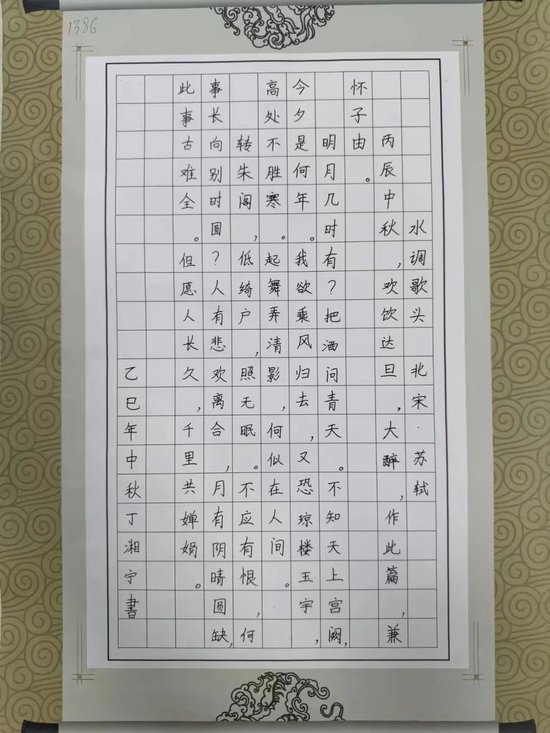 水调歌头 北宋·苏轼
丙辰中秋，欢饮达旦，大醉，作此篇，兼
怀子由。
明月几时有？把酒问青天。不知天上宫阙，
今夕是何年。我欲乘风归去，又恐琼楼玉宇，
高处不胜寒。起舞弄清影，何似在人间。
转朱阁，低绮户，照无眠。不应有恨，何
事长向别时圆？人有悲欢离合，月有阴晴圆缺，
此事古难全。但愿人长久，千里共婵娟。
乙巳年中秋丁湘宁書
1386